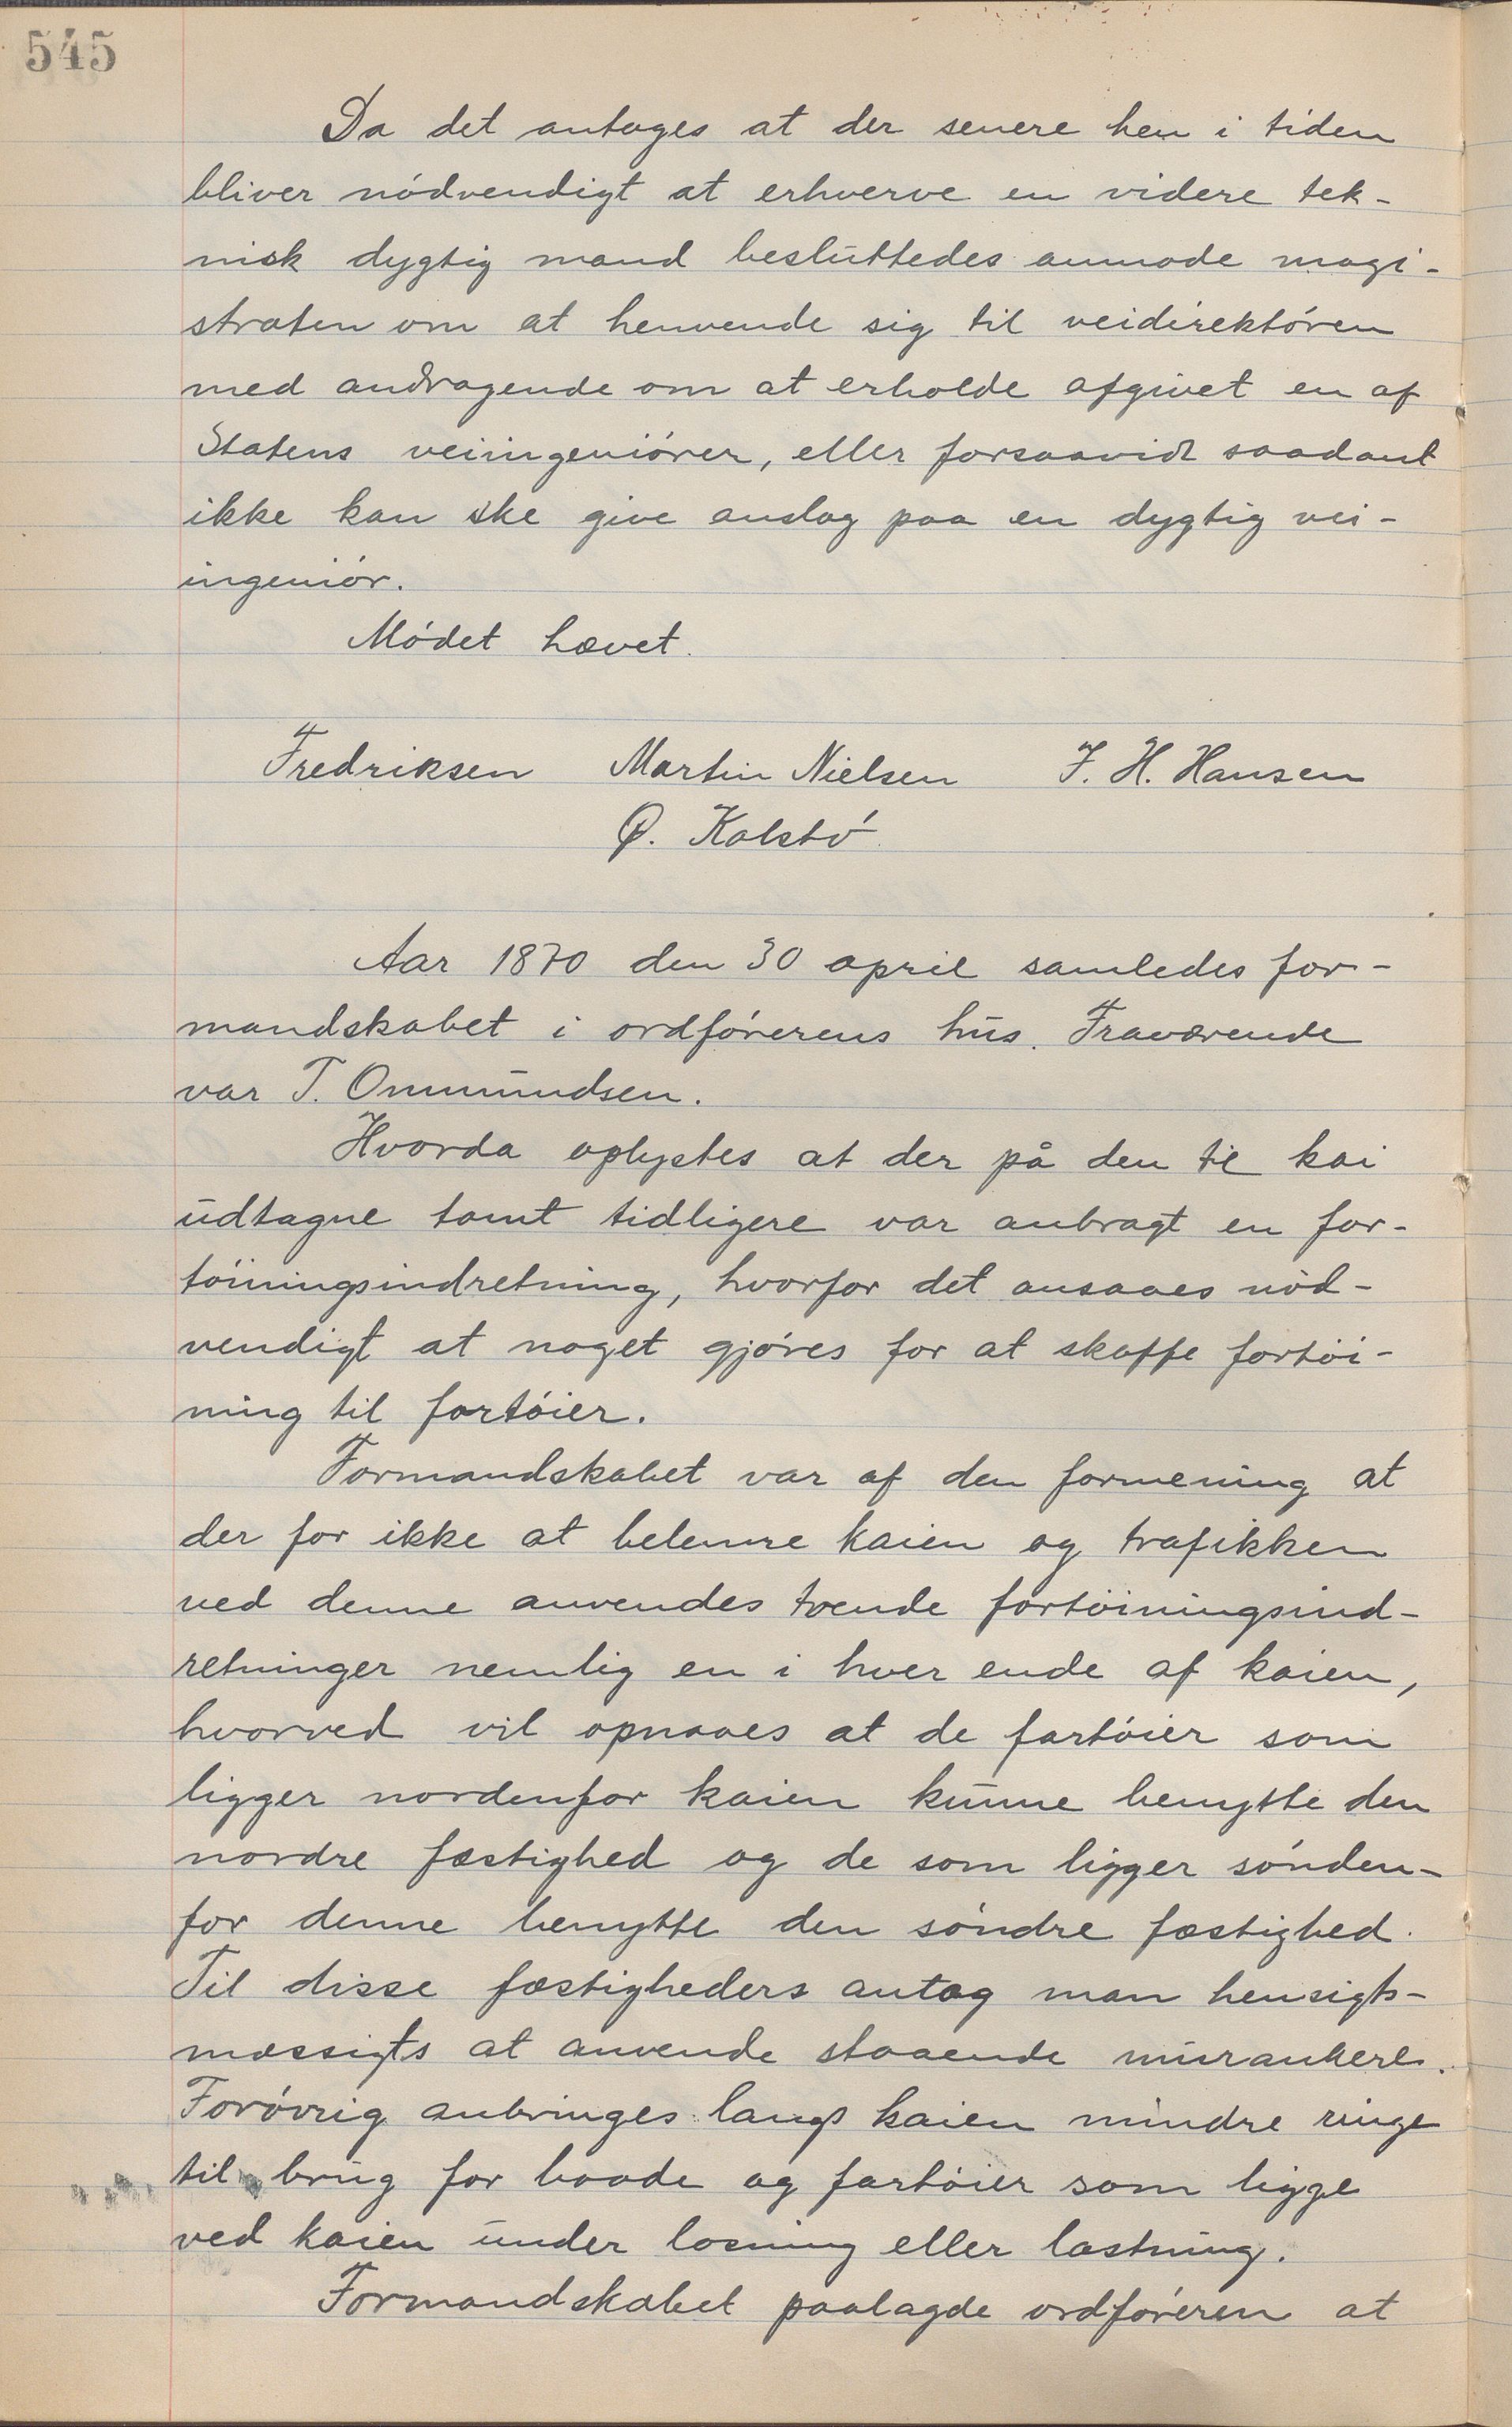 545
Da det antages at der senere hen i tiden
bliver nódvendigt at erhverve en videre tek-
nisk dygtig mand besluttedes anmode magi-
straten om at henvende sig til veidirektóren
med andragende om at erholde afgivet en af
Statens veiingeniórer, eller forsaavidt saadant
ikke kan ske give anslag paa en dygtig vei-
ingeniór.
Módet hævet.
Fredriksen Martin Nielsen F. H. Hansen
O. Kalstó
Aar 1870 den 30 april samledes for-
mandskabet i ordfórerens hus. Fraværende
var T. Ommundsen.
Hvorda oplystes at der på den til kai
udtagne tomt tidligere var anbragt en for-
tóiningsindretning, hvorfor det ansaaes nód-
vendigt at noget gjóres for at skaffe fortói-
ning til fartóier.
Formandskabet var af den formening at
der for ikke at belemre kaien og trafikken
ved denne anvendes tvende fortóiningsind-
retninger nemlig en i hver ende af kaien,
hvorved vil opnaaes at de fartóier som
ligger nordenfor kaien kunne benytte den
nordre fæstighed og de som ligger sónden-
for denne benytte den sóndre fæstighed.
Til disse fæstigheders antog man hensigts-
mæssigts at anvende staaende murankere.
Foróvrig anbringes langs kaien mindre ringe
til brug for baade og fartóier som ligge
ved kaien under losning eller lastning.
Formandskabet paalagde ordfóreren at